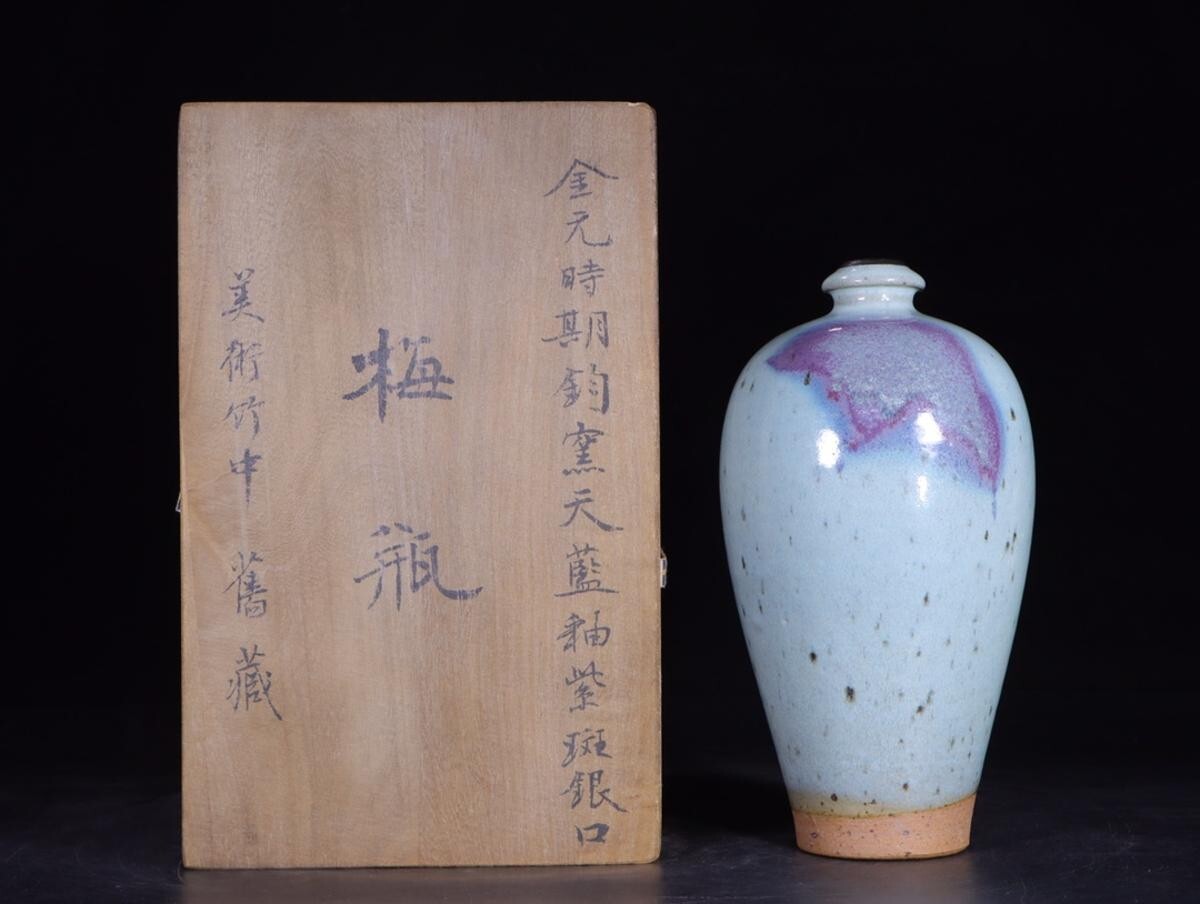 金元時期鈞窯天藍釉紫斑銀口
梅瓶
美術竹中 舊藏